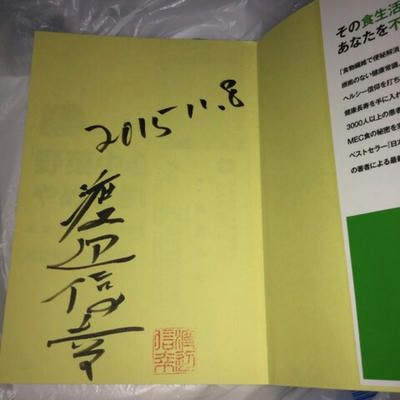 2015.11.8
渡辺信幸
その食生活
あなたを不
「食物繊維で便秘解消
根拠のない健康常識
ヘルシー信仰を打ち
健康長寿を手に入れ
3000人以上の患
MEC食の秘密を
ベストセラー『日
の著者による最